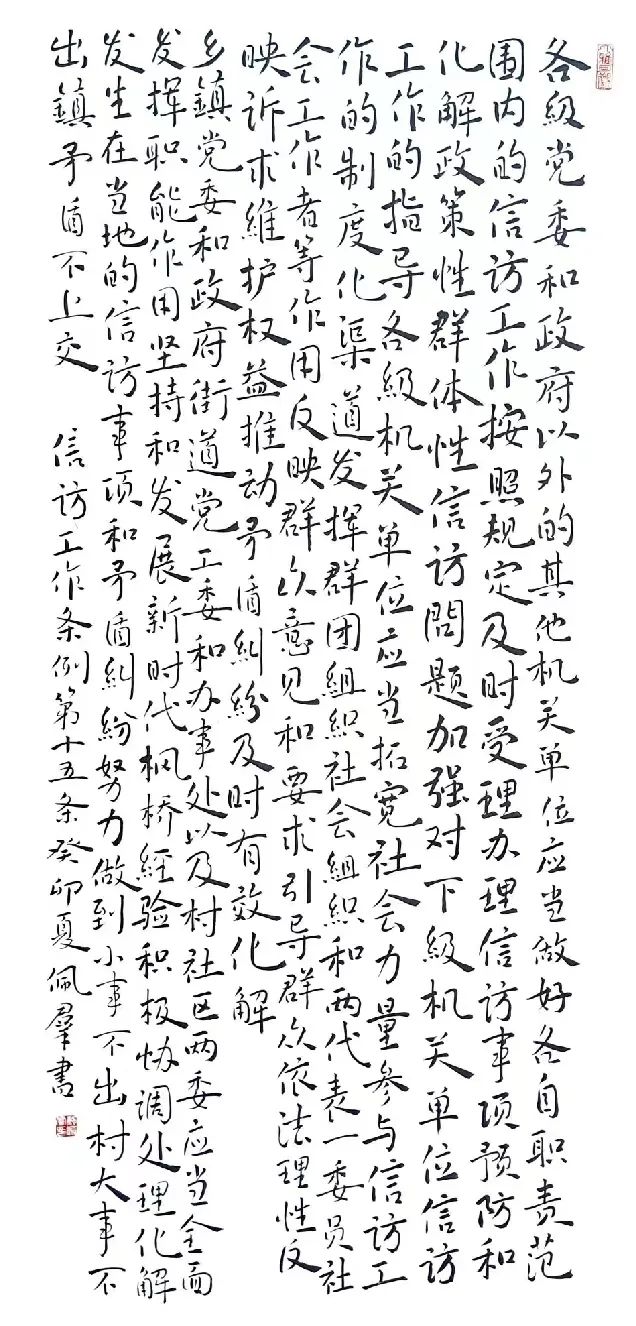 各級党委和政府以外的其他机关单位应当做好各自职责范
围内的信访工作按照规定及时受理办理信访事项预防和
化解政策性群体性信访問題加强对下級机关单位信访
工作的指导各級机关单位应当拓宽社会力量参与信访工
作的制度化渠道发挥群团組织社会組织和两代表一委员社
会工作者等作用反映群众意见和要求引导群众依法理性反
映诉求維护权益推动矛盾糾紛及时有效化解
乡鎮党委和政府街道党工委和办事处以及村社区两委应当全面
发挥职能作用坚持和发展新时代枫桥経验积极协调处理化解
发生在当地的信访事项和矛盾糾紛努力做到小事不出村大事不
出鎮矛盾不上交
信访工作条例第十五条癸卯夏佩羣書